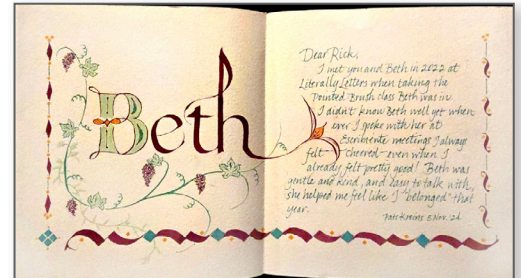 Beth
Dear Rick,
I met you and Beth in 2022 at
Literally Letters when taking the
Pointed Brush class Beth was in.
I didn't know Beth well yet when
ever I spoke with her at
Escribiente meetings I always
felt cheered - even when I
already felt pretty good! Beth was
gentle and kind, and easy to talk with,
she helped me feel like I "belonged" that
year.
5 Nov. '24